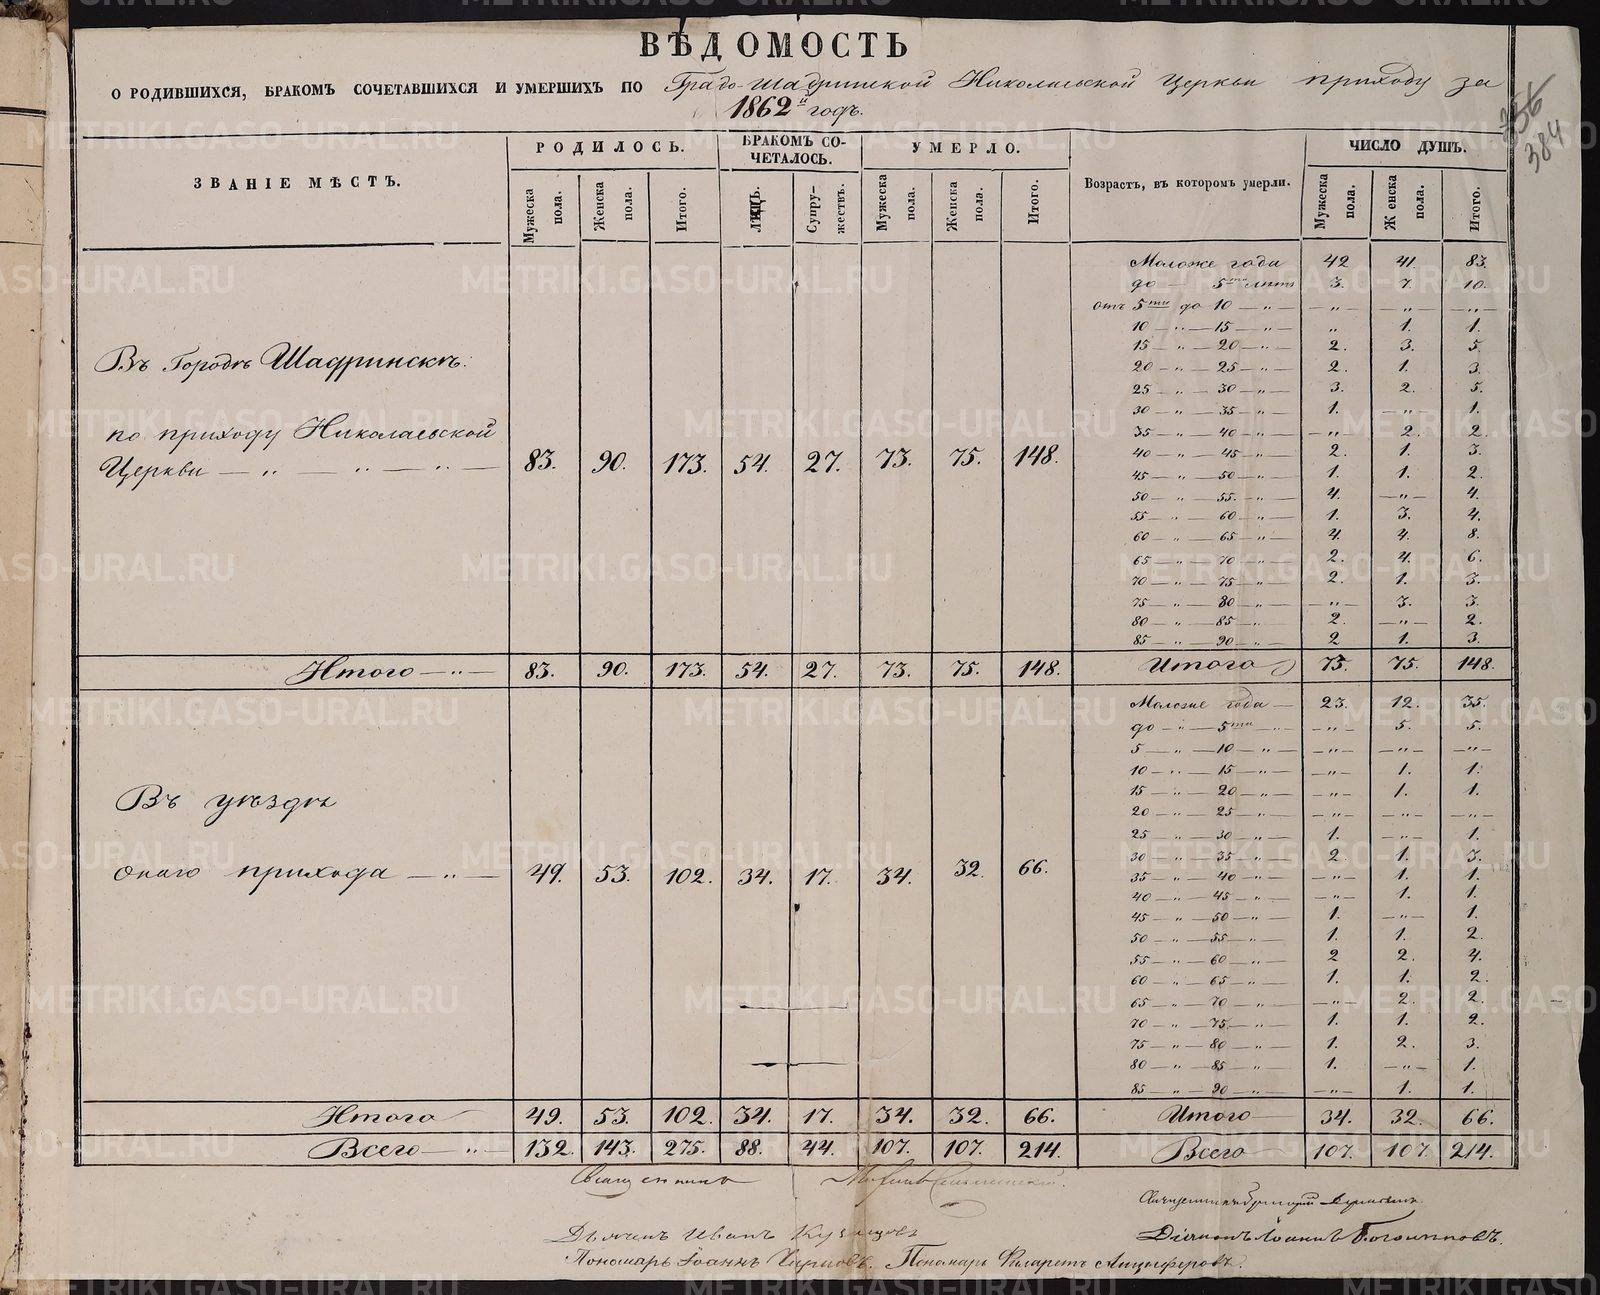 ВѢДОМОСТЬ
О РОДИВШИХСЯ, БРАКОМЪ СОЧЕТАВШИХСЯ И УМЕРШИХЪ ПО Градо-Шадринской Николаевской Церкви приходу за
1862й годъ.
356
384
ЗВАНІЕ МѢСТЪ. РОДИЛОСЬ. БРАКОМЪ СО-ЧЕТАЛОСЬ. УМЕРЛО. Возрастъ, въ которомъ умерли. ЧИСЛО ДУШЪ.
Мужеска пола. Женска пола. Итого. ЛИЦЪ. Супру-жествъ. Мужеска пола. Женска пола. Итого. Мужеска пола. Женска пола. Итого.
Моложе года 42 41. 83.
до — 5ти лѣтъ 3. 7. 10.
отъ 5ти до 10 — „ — — „ — — „ — — „ —
10 — „ — 15 — „ — „ 1. 1.
15 — „ — 20 — „ — 2. 3. 5.
20 — „ — 25 — „ — 2. 1. 3.
Въ Городѣ Шадринскѣ:
25 — „ — 30 — „ — 3. 2. 5.
30 — „ — 35 — „ — 1. — „ — 1.
35 — „ — 40 — „ — — „ — 2. 2.
по приходу Николаевской
40 — „ — 45 — „ — 2. 1. 3.
Церкви — „ — „ — „ — 83. 90. 173. 54. 27. 73. 75. 148.
45 — „ — 50 — „ — 1. 1. 2.
50 — „ — 55. — „ — 4. — „ — 4.
55 — „ — 60 — „ — 1. 3. 4.
60 — „ — 65 — „ — 4. 4. 8.
65 — „ — 70 — „ — 2. 4. 6.
70 — „ — 75 — „ — 2. 1. 3.
75 — „ — 80 — „ — — „ — 3. 3.
80 — „ — 85 — „ — 2. — „ — 2.
85 — „ — 90 — „ — 2 1. 3.
Итого — „ — 83. 90. 173. 54. 27. 73. 75. 148. Итого 75. 148.
Моложе года — 23. 12. 35.
до — „ — 5ти — „ — — „ — 5. 5.
5 — „ — 10 — „ — — „ — — „ — — „ —
10 — „ — 15 — „ — — „ — 1. 1.
15 — „ — 20 — „ — — „ — 1. 1.
Въ уѣздѣ
20 — „ — 25 — „ — — „ — — „ — — „ —
25 — „ — 30 — „ — 1. — „ — 1.
30 — „ — 35 — „ — 2. 1. 3.
онаго прихода — „ — 49. 53. 102. 34. 17. 34. 32. 66.
35 — „ — 40 — „ — — „ — 1. 1.
40 — „ — 45 — „ — — „ — 1. 1.
45 — „ — 50 — „ — 1. — „ — 1.
50 — „ — 55 — „ — 1. 1. 2.
55 — „ — 60 — „ — 2 2. 4.
60 — „ — 65 — „ — 1. 1. 2.
65 — „ — 70 — „ — — „ — 2. 2.
70 — „ — 75 — „ — 1. 1. 2.
75 — „ — 80 — „ — 1. 2. 3.
80 — „ — 85 — „ — 1. — „ — 1.
85 — „ — 90 — „ — — „ — 1. 1.
Итого 49. 53. 102. 34. 17. 34. 32. 66. Итого 34. 32. 66.
Всего — „ — 132. 143. 275. 88. 44. 107. 107. 214. Всего 107. 107. 214.
Священникъ
Священникъ Григорій
Дьяконъ Иванъ Кузнецовъ
Діяконъ Іоаннъ
Пономарь Іоаннъ Пономарь Филаретъ Анциферовъ.
METRIKI.GASO-URAL.RU